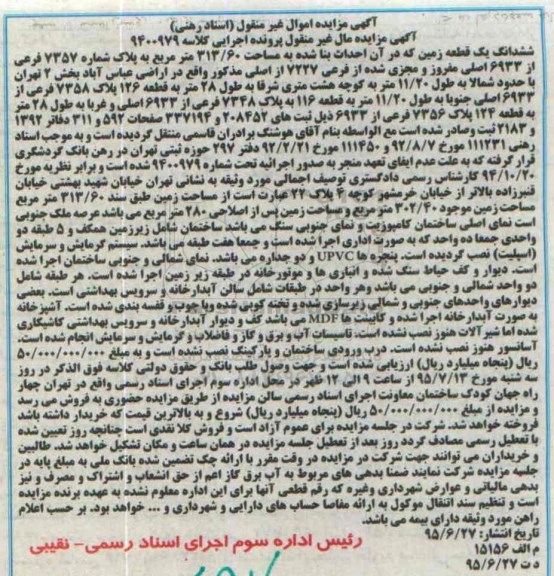 آگهی مزایده اموال غیر منقول (اسناد رهنی)
آگهی مزایده مال غیر منقول پرونده اجرایی کلاسه ۹۴۰۰۹۷۹
ششدانگ یک قطعه زمین که در آن احداث بنا شده به مساحت ۳۱۳/۶۰ متر مربع به پلاک شماره ۷۳۵۷ فرعی
از ۶۹۳۳ اصلی مفروز و مجزی شده از فرعی ۷۲۲۷ از اصلی مذکور واقع در اراضی عباس آباد بخش ۲ تهران
با حدود شمالا به طول ۱۱/۲۰ متر به کوچه هشت متری شرقا به طول ۲۸ متر به قطعه ۱۲۶ پلاک ۷۳۵۸ فرعی از
۶۹۳۳ اصلی جنوبا به طول ۱۱/۲۰ متر به قطعه ۱۱۶ به پلاک ۷۳۴۸ فرعی از ۶۹۳۳ اصلی و غربا به طول ۲۸ متر
به قطعه ۱۲۴ پلاک ۷۳۵۶ فرعی از ۶۹۳۳ اصلی ذیل ثبت های ۲۰۸۴۵۲ و ۳۳۷۱۹۴ صفحات ۵۹۲ و ۳۱۱ دفاتر ۱۳۹۲
و ۲۱۸۳ ثبت وصادر شده است مع الواسطه بنام آقای هوشنگ برادران قاسمی منتقل گردیده است و به موجب اسناد
رهنی ۱۱۱۲۳۱ مورخ ۹۲/۸/۷ و ۱۱۱۴۵۰ مورخ ۹۲/۲/۲۱ دفتر ۲۹۷ حوزه ثبتی تهران در رهن بانک گردشگری
قرار گرفته که به علت عدم ایفای تعهد منجر به صدور اجرائیه تحت شماره ۹۴۰۰۹۷۹ شده است و برابر نظریه مورخ
۹۴/۱۰/۲۰ کارشناس رسمی دادگستری توصیف اجمالی مورد وثیقه به نشانی تهران خیابان شهید بهشتی خیابان
قنبرزاده بالاتر از خیابان خرمشهر کوچه ۴ پلاک ۲۲ عبارت است از مساحت زمین طبق سند ۳۱۳/۶۰ متر مربع
مساحت زمین موجود ۳۰۲/۴۰ متر مربع و مساحت زمین پس از اصلاحی ۲۸۰ متر مربع می باشد عرصه ملک جنوبی
است نمای اصلی ساختمان کامپوزیت و نمای جنوبی سنگ می باشد ساختمان شامل زیرزمین همکف و ۵ طبقه دو
واحدی جمعا ده واحد که به صورت اداری اجرا شده است و جمعا هفت طبقه می باشد. سیستم گرمایش و سرمایش
(اسپلیت) نصب گردیده است. پنجره ها UPVC و دو جداره می باشد. نمای شمالی و جنوبی ساختمان اجرا شده
است. دیوار و کف حیاط سنگ شده و انباری ها و موتورخانه در طبقه زیر زمین اجرا شده است. هر طبقه شامل
دو واحد شمالی و جنوبی می باشد وهر واحد در طبقات شامل سالن آبدارخانه و سرویس بهداشتی است. بعضی
دیوارهای واحدهای جنوبی و شمالی زیرسازی شده و تخته کوبی شده ویا چوب و قفسه بندی شده است. آشپزخانه
به صورت آبدارخانه اجرا شده و کابینت ها MDF می باشد کف و دیوار آبدارخانه و سرویس بهداشتی کاشیکاری
شده اما شیر آلات هنوز نصب نشده است. تاسیسات آب و برق و گاز و فاضلاب و گرمایش و سرمایش انجام شده است.
آسانسور هنوز نصب نشده است. درب ورودی ساختمان و پارکینگ نصب نشده است و به مبلغ ۵۰/۰۰۰/۰۰۰/۰۰۰
ریال (پنجاه میلیارد ریال) ارزیابی شده است و جهت وصول طلب بانک و حقوق دولتی کلاسه فوق الذکر در روز
سه شنبه مورخ ۹۵/۷/۱۳ از ساعت ۹ الی ۱۲ ظهر در محل اداره سوم اجرای اسناد رسمی واقع در تهران چهار
راه جهان کودک ساختمان معاونت اجرای اسناد رسمی سالن مزایده از طریق مزایده حضوری به فروش می رسد
و مزایده از مبلغ ۵۰/۰۰۰/۰۰۰/۰۰۰ ریال (پنجاه میلیارد ریال) شروع و به بالاترین قیمت که خریدار داشته باشد
فروخته خواهد شد. شرکت در جلسه مزایده برای عموم آزاد است و فروش کلا نقدی است چنانچه روز تعیین شده
با تعطیل رسمی مصادف گردد روز بعد از تعطیل جلسه مزایده در همان ساعت و مکان تشکیل خواهد شد. طالبین
و خریداران می توانند جهت شرکت در مزایده در وقت مقرر با ارائه چک تضمین شده بانک ملی به مبلغ پایه در
جلسه مزایده شرکت نمایند ضمنا بدهی های مربوط به آب برق گاز اعم از حق انشعاب و اشتراک و مصرف و نیز
بدهی مالیاتی و عوارض شهرداری وغیره که رقم قطعی آنها برای این اداره معلوم نشده به عهده برنده مزایده
است و تنظیم سند انتقال موکول به ارائه مفاصا حساب های دارایی و شهرداری و ... خواهد بود. بر حسب اعلام
راهن مورد وثیقه دارای بیمه می باشد.
تاریخ انتشار: ۹۵/۶/۲۷
م الف ۱۵۱۵۶
د ت ۹۵/۶/۲۷
رئیس اداره سوم اجرای اسناد رسمی- نقیبی